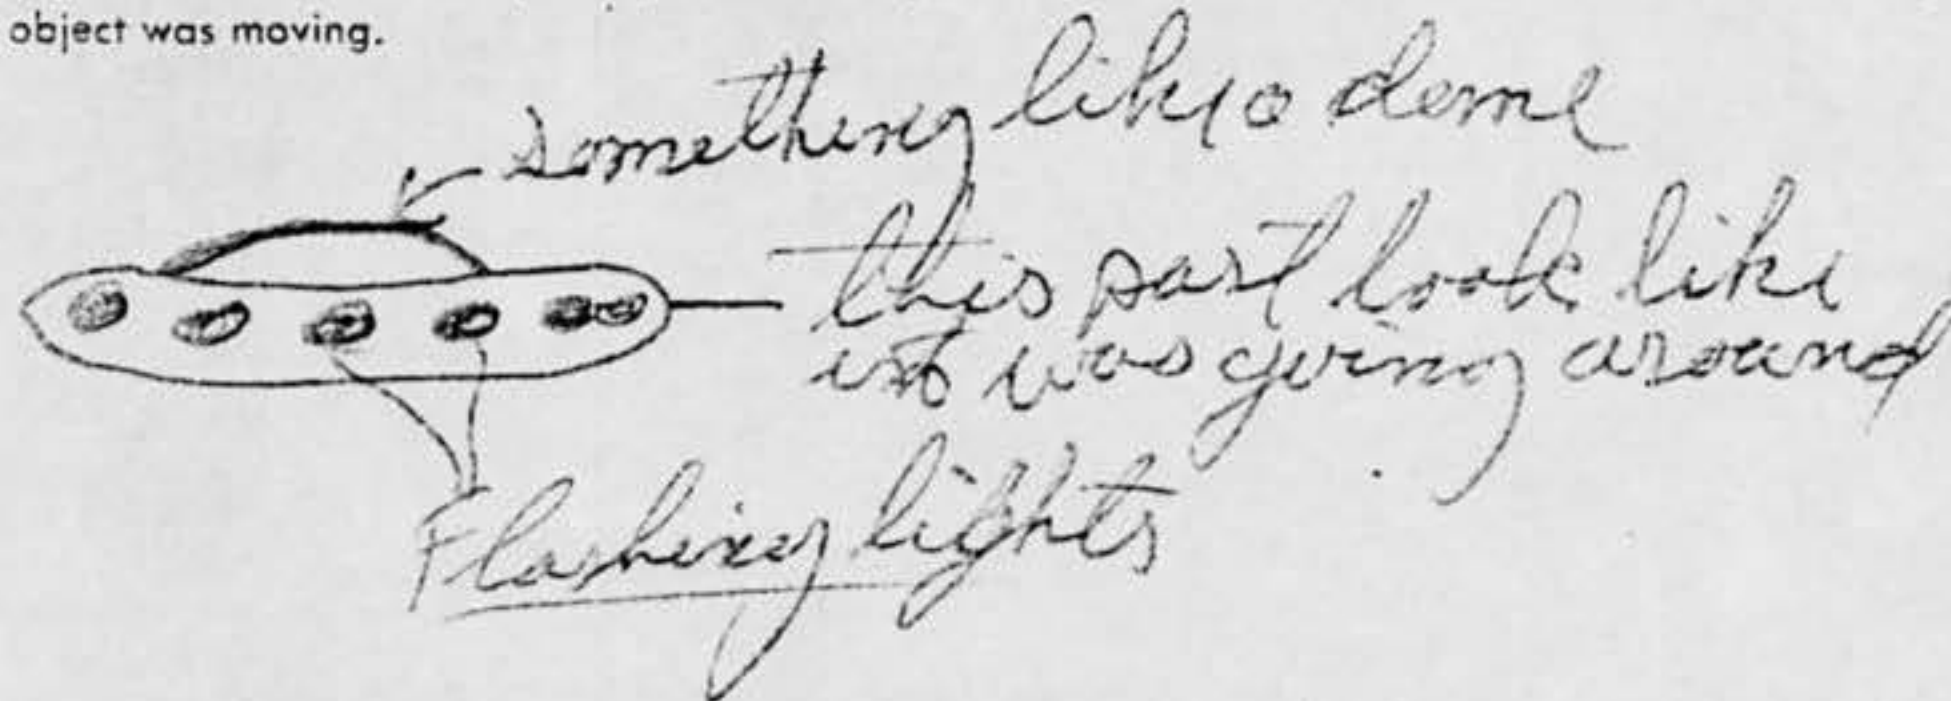 object was moving.
something like a dome
this part look like
it was going around
Flashing lights